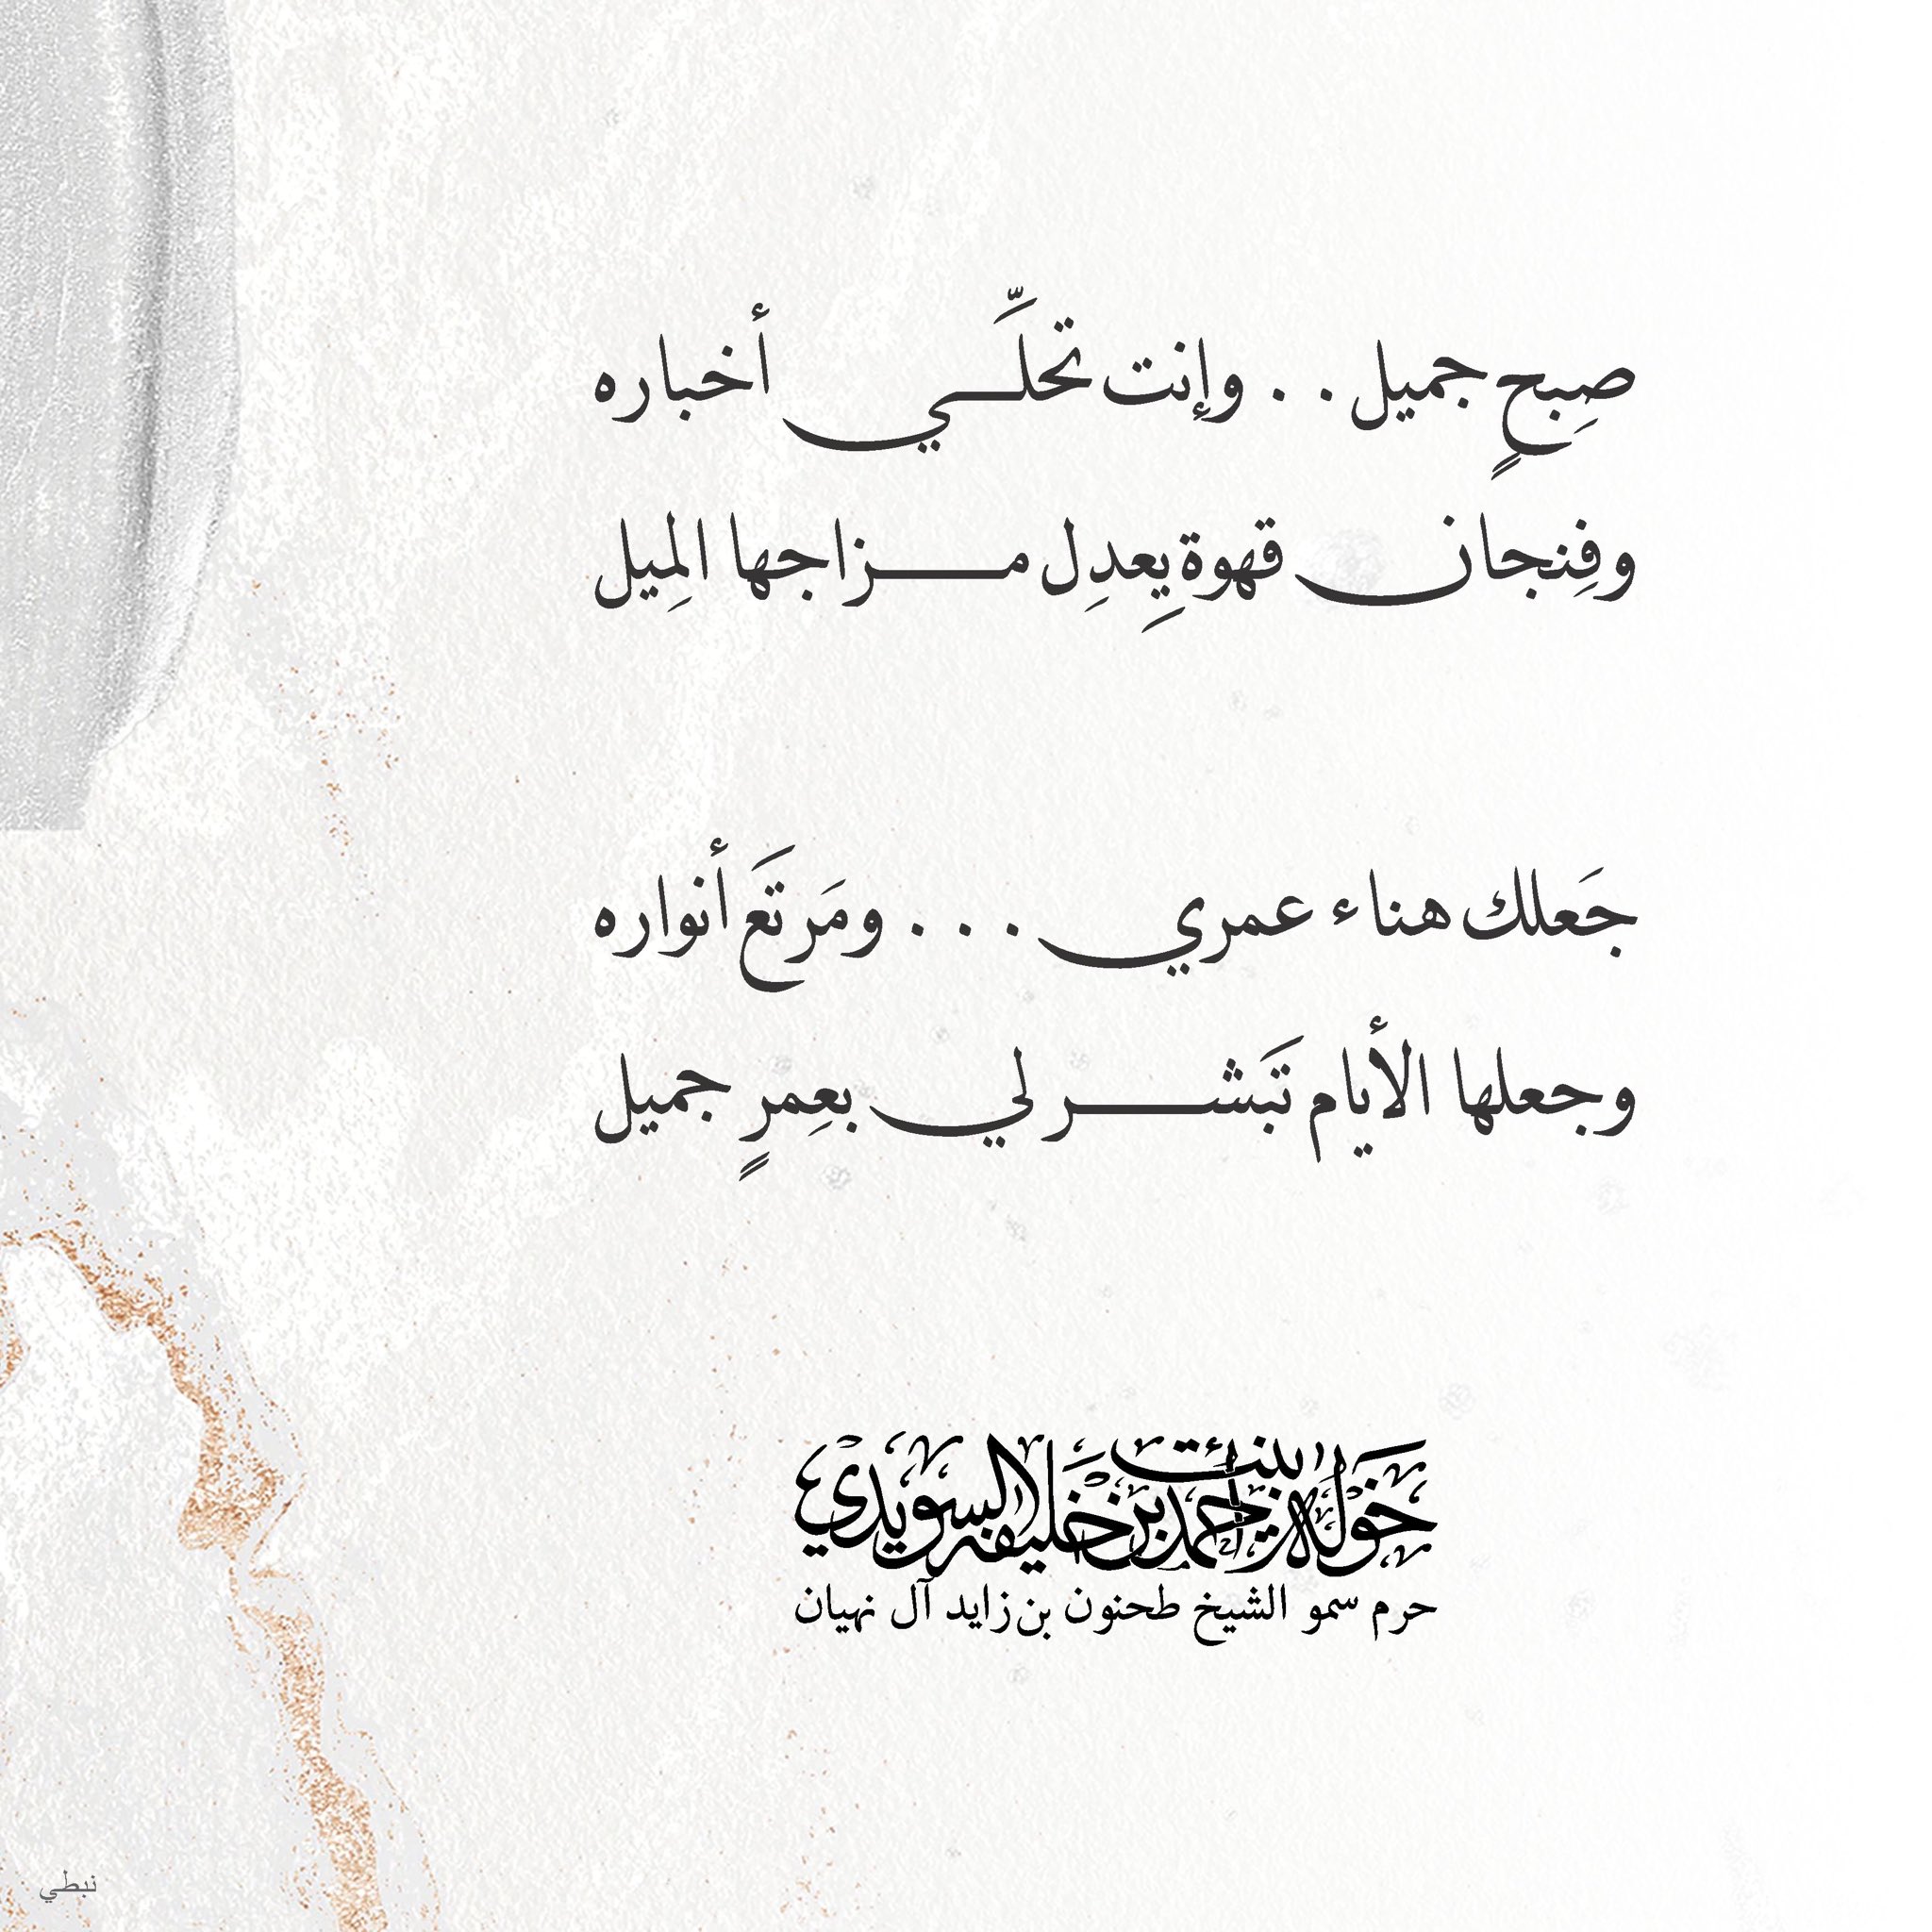 صِبحٍ جميل . . وإنت تحلِّي أخباره
وفِنجان قهوة يِعدِل مزاجها المِيل
جَعلك هناء عمري . . . ومَرتَع أنواره
وجعلها الأيام تَبشر لي بعِمرٍ جميل
خولة بنت احمد بن خليفه السويدي
حرم سمو الشيخ طحنون بن زايد آل نهيان
نبطي